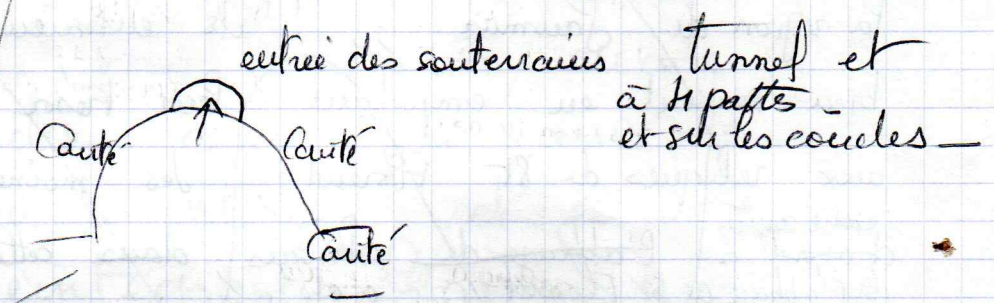 entrée des souterrains tunnel et
à 4 pattes
et sur les coudes –
Cavité Cavité
Cavité